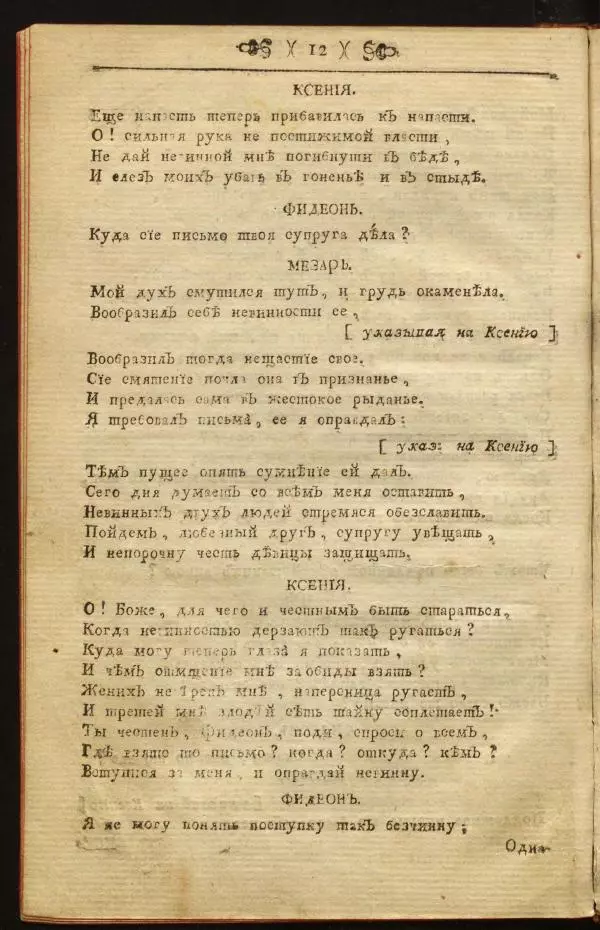 )( 12 )(
КСЕНІЯ.
Еще напасть теперь прибавилась къ напасти.
О! сильная рука не постижимой власти,
Не дай невинной мнѣ погибнути въ бѣдѣ,
И слезъ моихъ убавь въ гоненьѣ и въ стыдѣ.
ФИДЕОНЪ.
Куда сїе письмо твоя супруга дѣла?
МЕЗАРЬ.
Мой духъ смутился тутъ, и грудь окаменѣла.
Вообразилъ себѣ невинности ее,
[ указывая на Ксенїю ]
Вообразилъ тогда нещастїе свое.
Сїе смятенїе почла она въ признанье,
И предалась сама въ жестокое рыданье.
Я требовалъ письма, ее я оправдалъ:
[ указ: на Ксенїю ]
Тѣмъ пущее опять сумнѣнїе ей далъ.
Сего дня думаетъ со всѣмъ меня оставить,
Невинныхъ двухъ людей стремяся обезславить.
Пойдемъ, любезный другъ, супругу увѣщать,
И непорочну честь дѣвицы защищать.
КСЕНІЯ.
О! Боже, для чего и честнымъ быть стараться,
Когда невинностью дерзаютъ такъ ругаться?
Куда могу теперь глаза я показать,
И чѣмъ отмщенїе мнѣ за обиды взять?
Женихъ не вренъ мнѣ, наперсница ругаетъ,
И третей мнѣ злодѣй сѣть тайну соплетаетъ!
Ты честенъ, Фидеонъ, поди, спроси о всемъ,
Гдѣ взято то письмо? когда? откуда? кѣмъ?
Вступися за меня, и оправдай невинну.
ФИДЕОНЪ.
Я не могу понять поступку такъ безчинну;
Одна